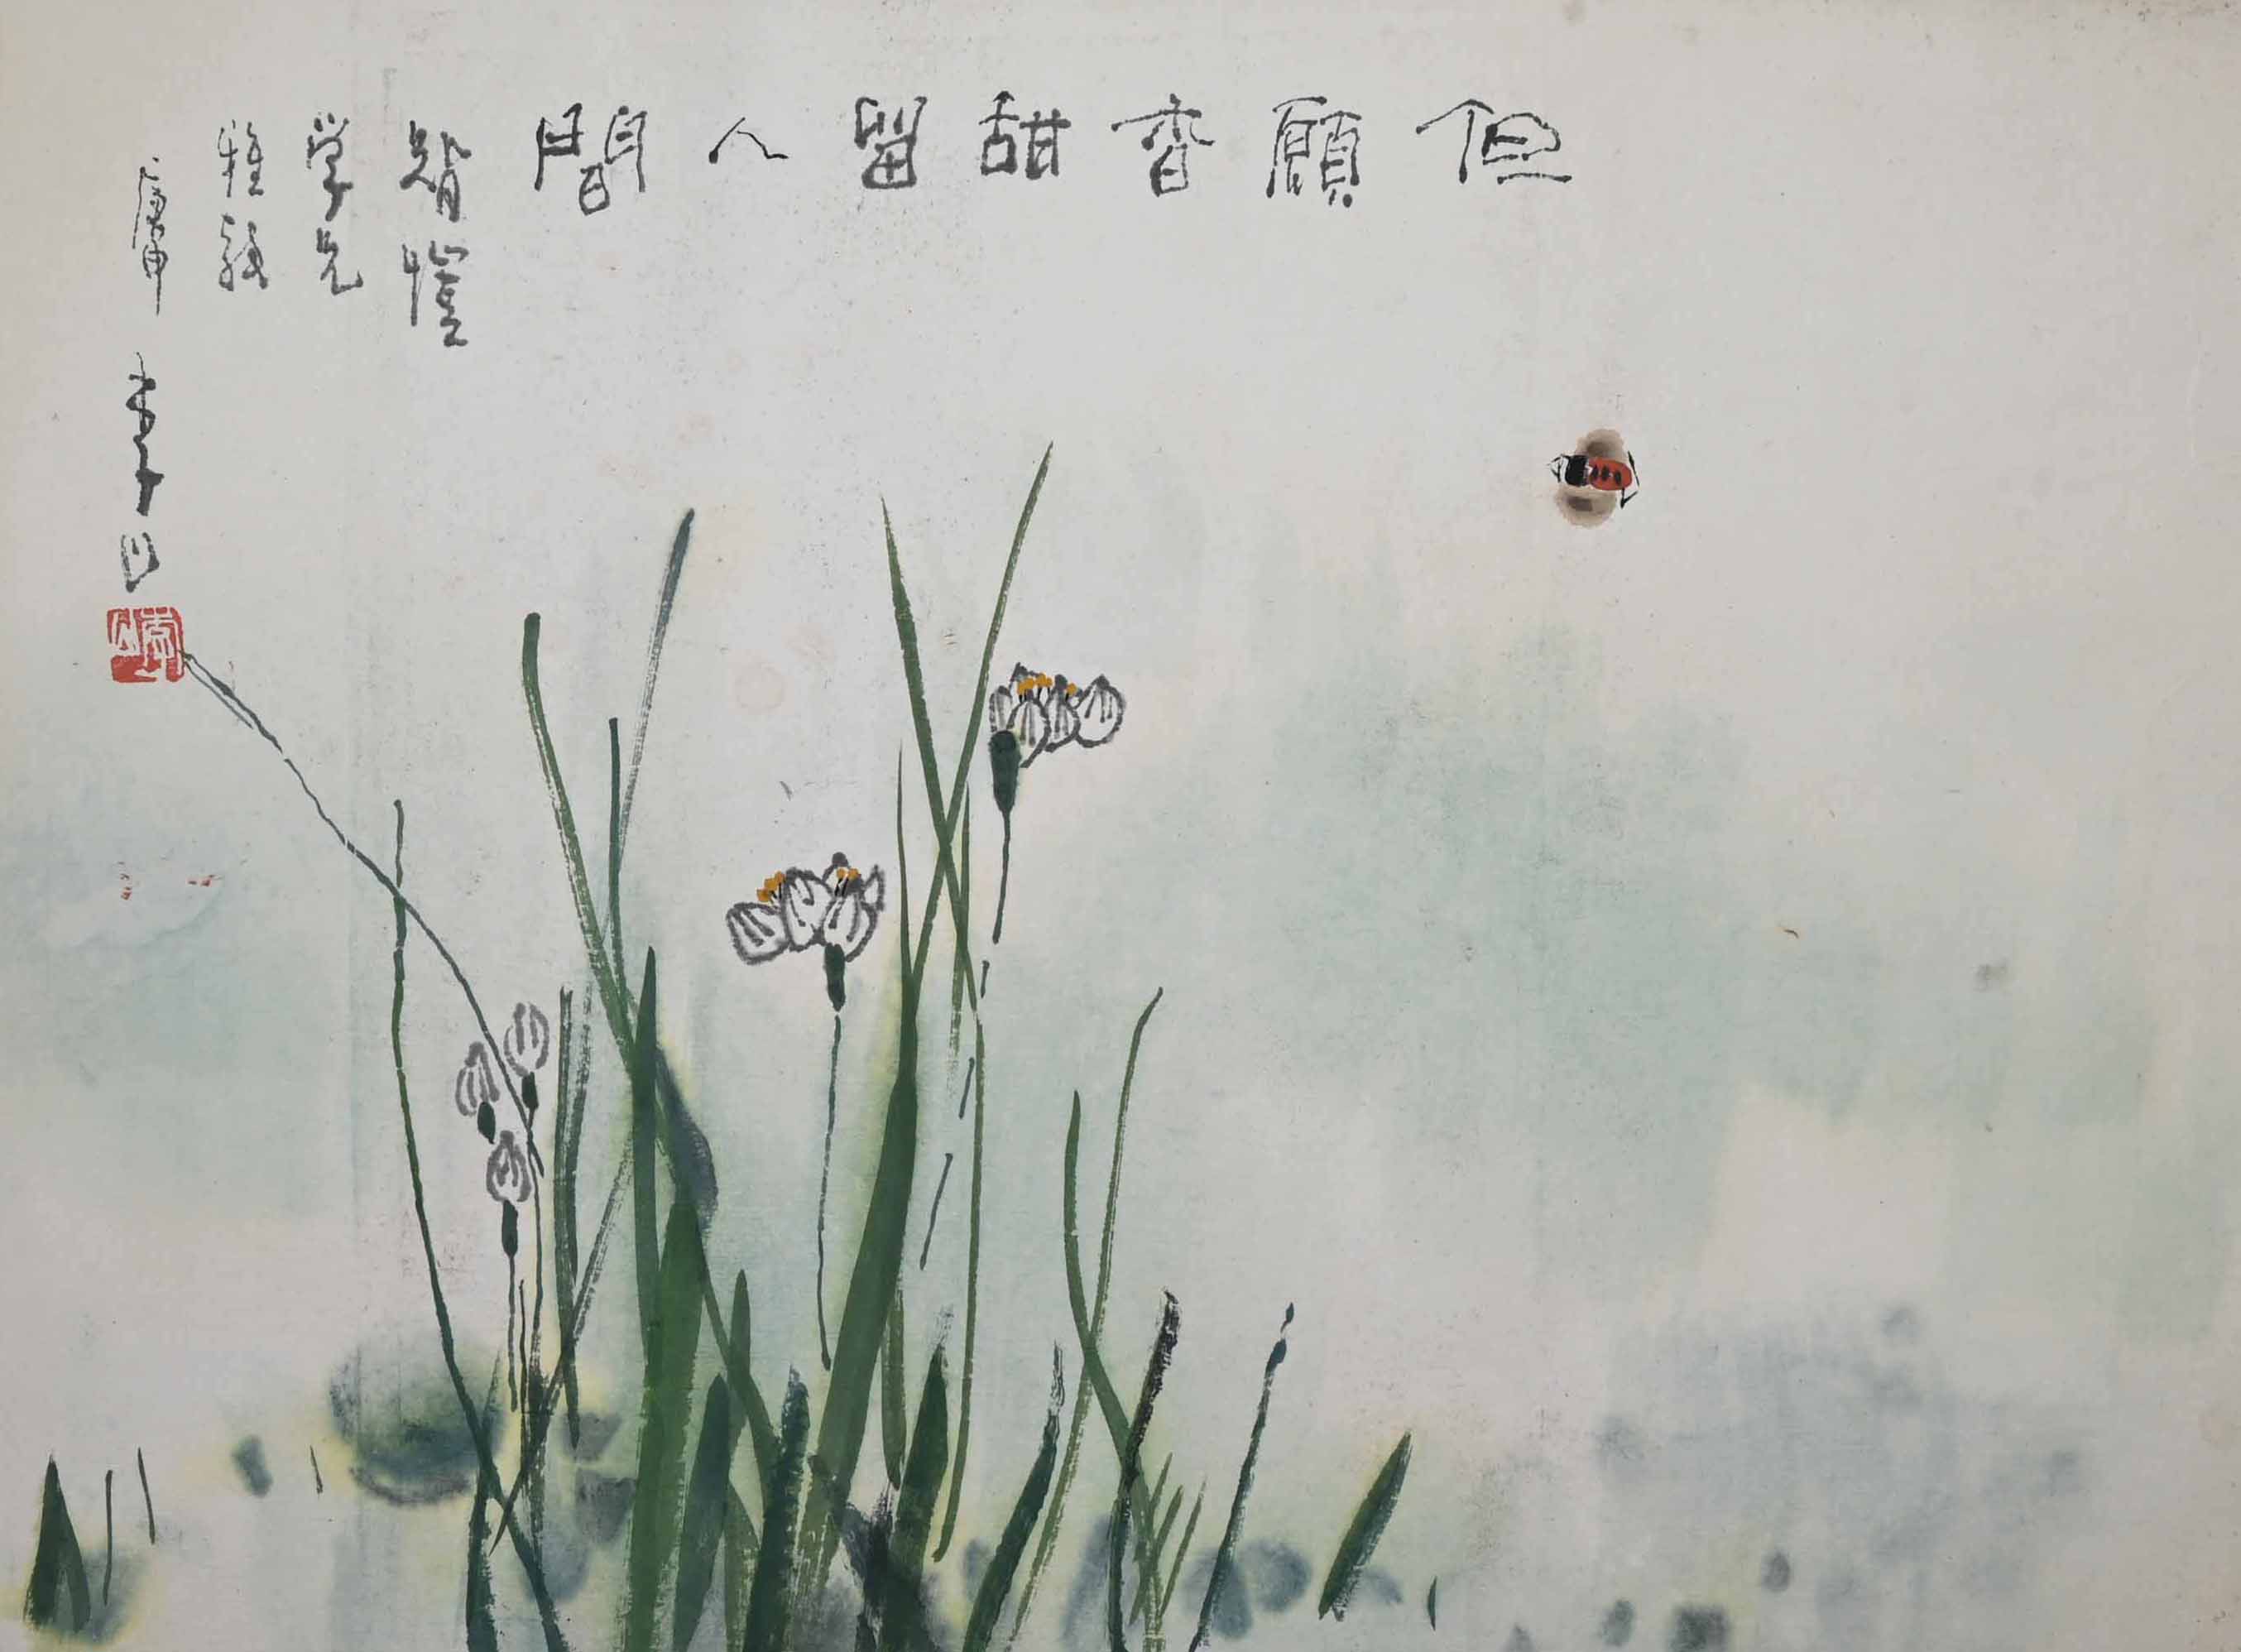 但願香甜留人間
智愷
学兄
雅
庚申 李山